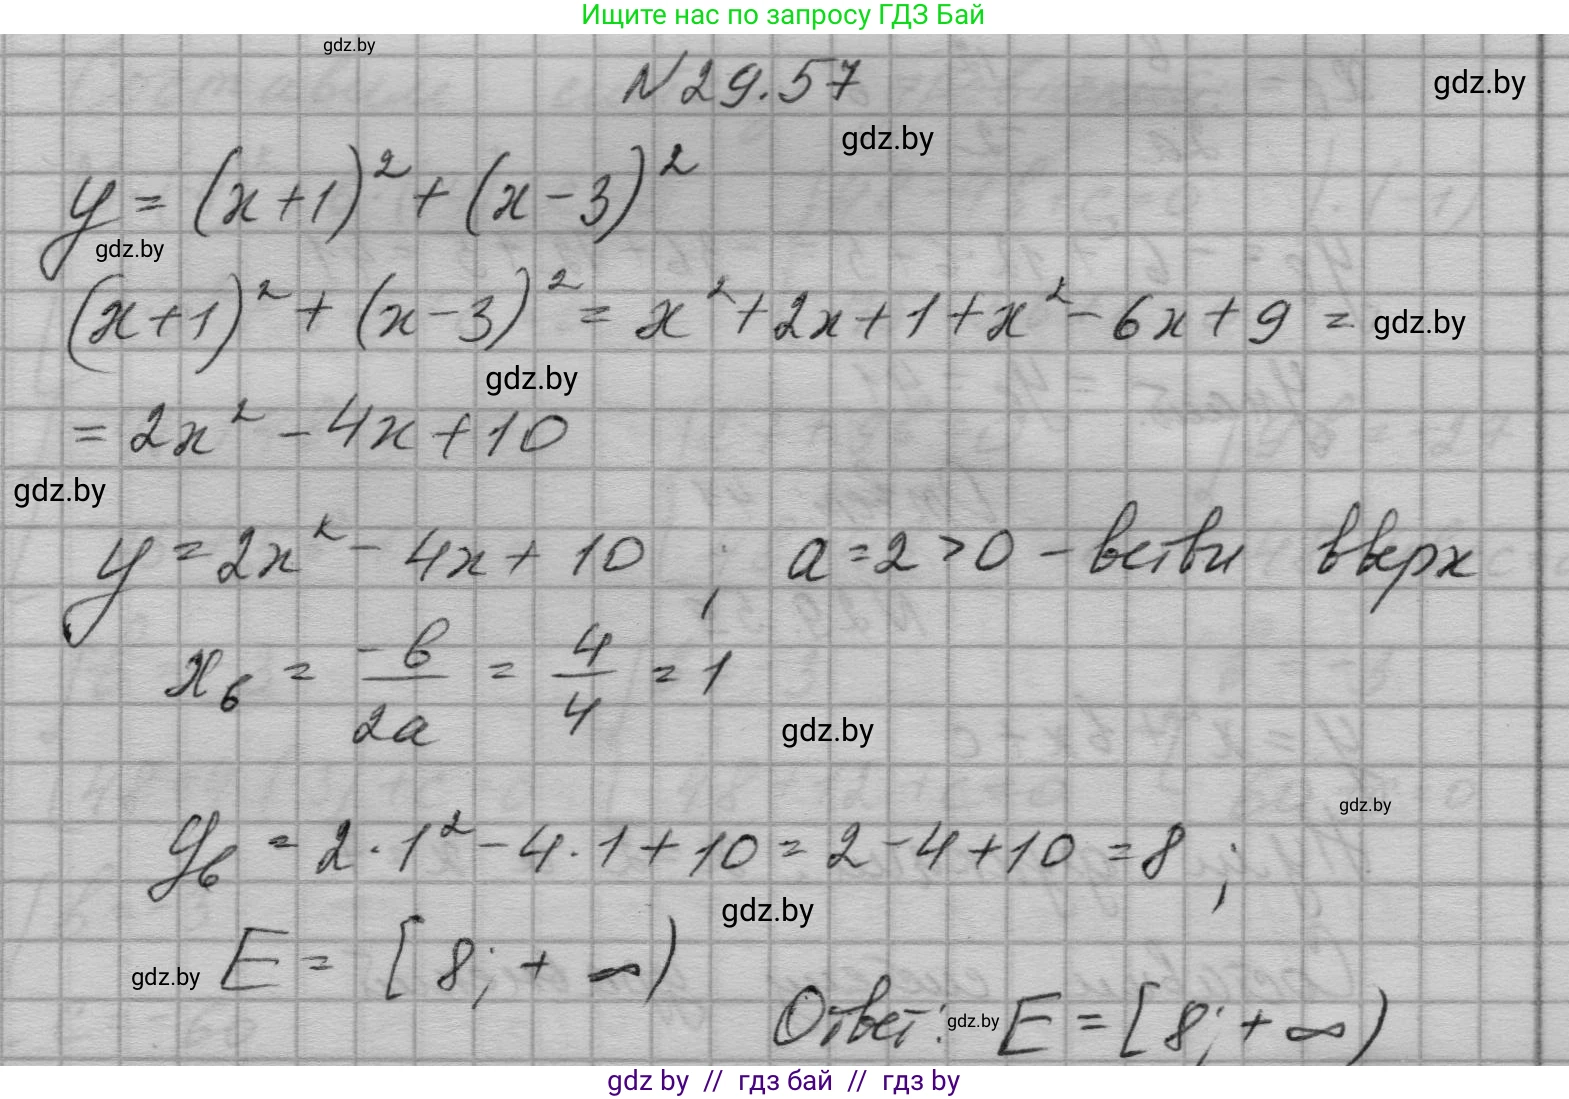 Ищите нас по запросу ГДЗ Бай
gdz.by
N 29.57
gdz.by
gdz.by
y = (x+1)² + (x-3)²
gdz.by
(x+1)² + (x-3)² = x² + 2x + 1 + x² - 6x + 9 =
gdz.by
gdz.by
= 2x² - 4x + 10
gdz.by
y = 2x² - 4x + 10 ; a = 2 > 0 - ветви вверх
xв = -в/2a = 4/4 = 1
gdz.by
gdz.by
yв = 2·1² - 4·1 + 10 = 2 - 4 + 10 = 8 ;
gdz.by
gdz.by
E = [8; +∞)
Ответ: E = [8; +∞)
gdz.by
gdz by // гдз бай // гдз by